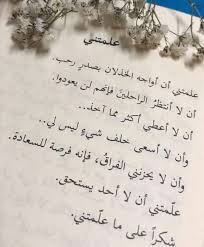 علمتني
علمتني أن أواجه الخذلان بصدرٍ رحب.
أن لا أنتظرُ الراحلينَ فإنهم لن يعودوا.
أن لا أعطي أكثر مما آخذ..
وأن لا أسعى خلف شيءٍ ليس لي..
وأن لا يحزنني الفراقُ، فإنه فرصة للسعادة.
علّمتني أن لا أحد يستحق.
شكراً على ما علّمتني.